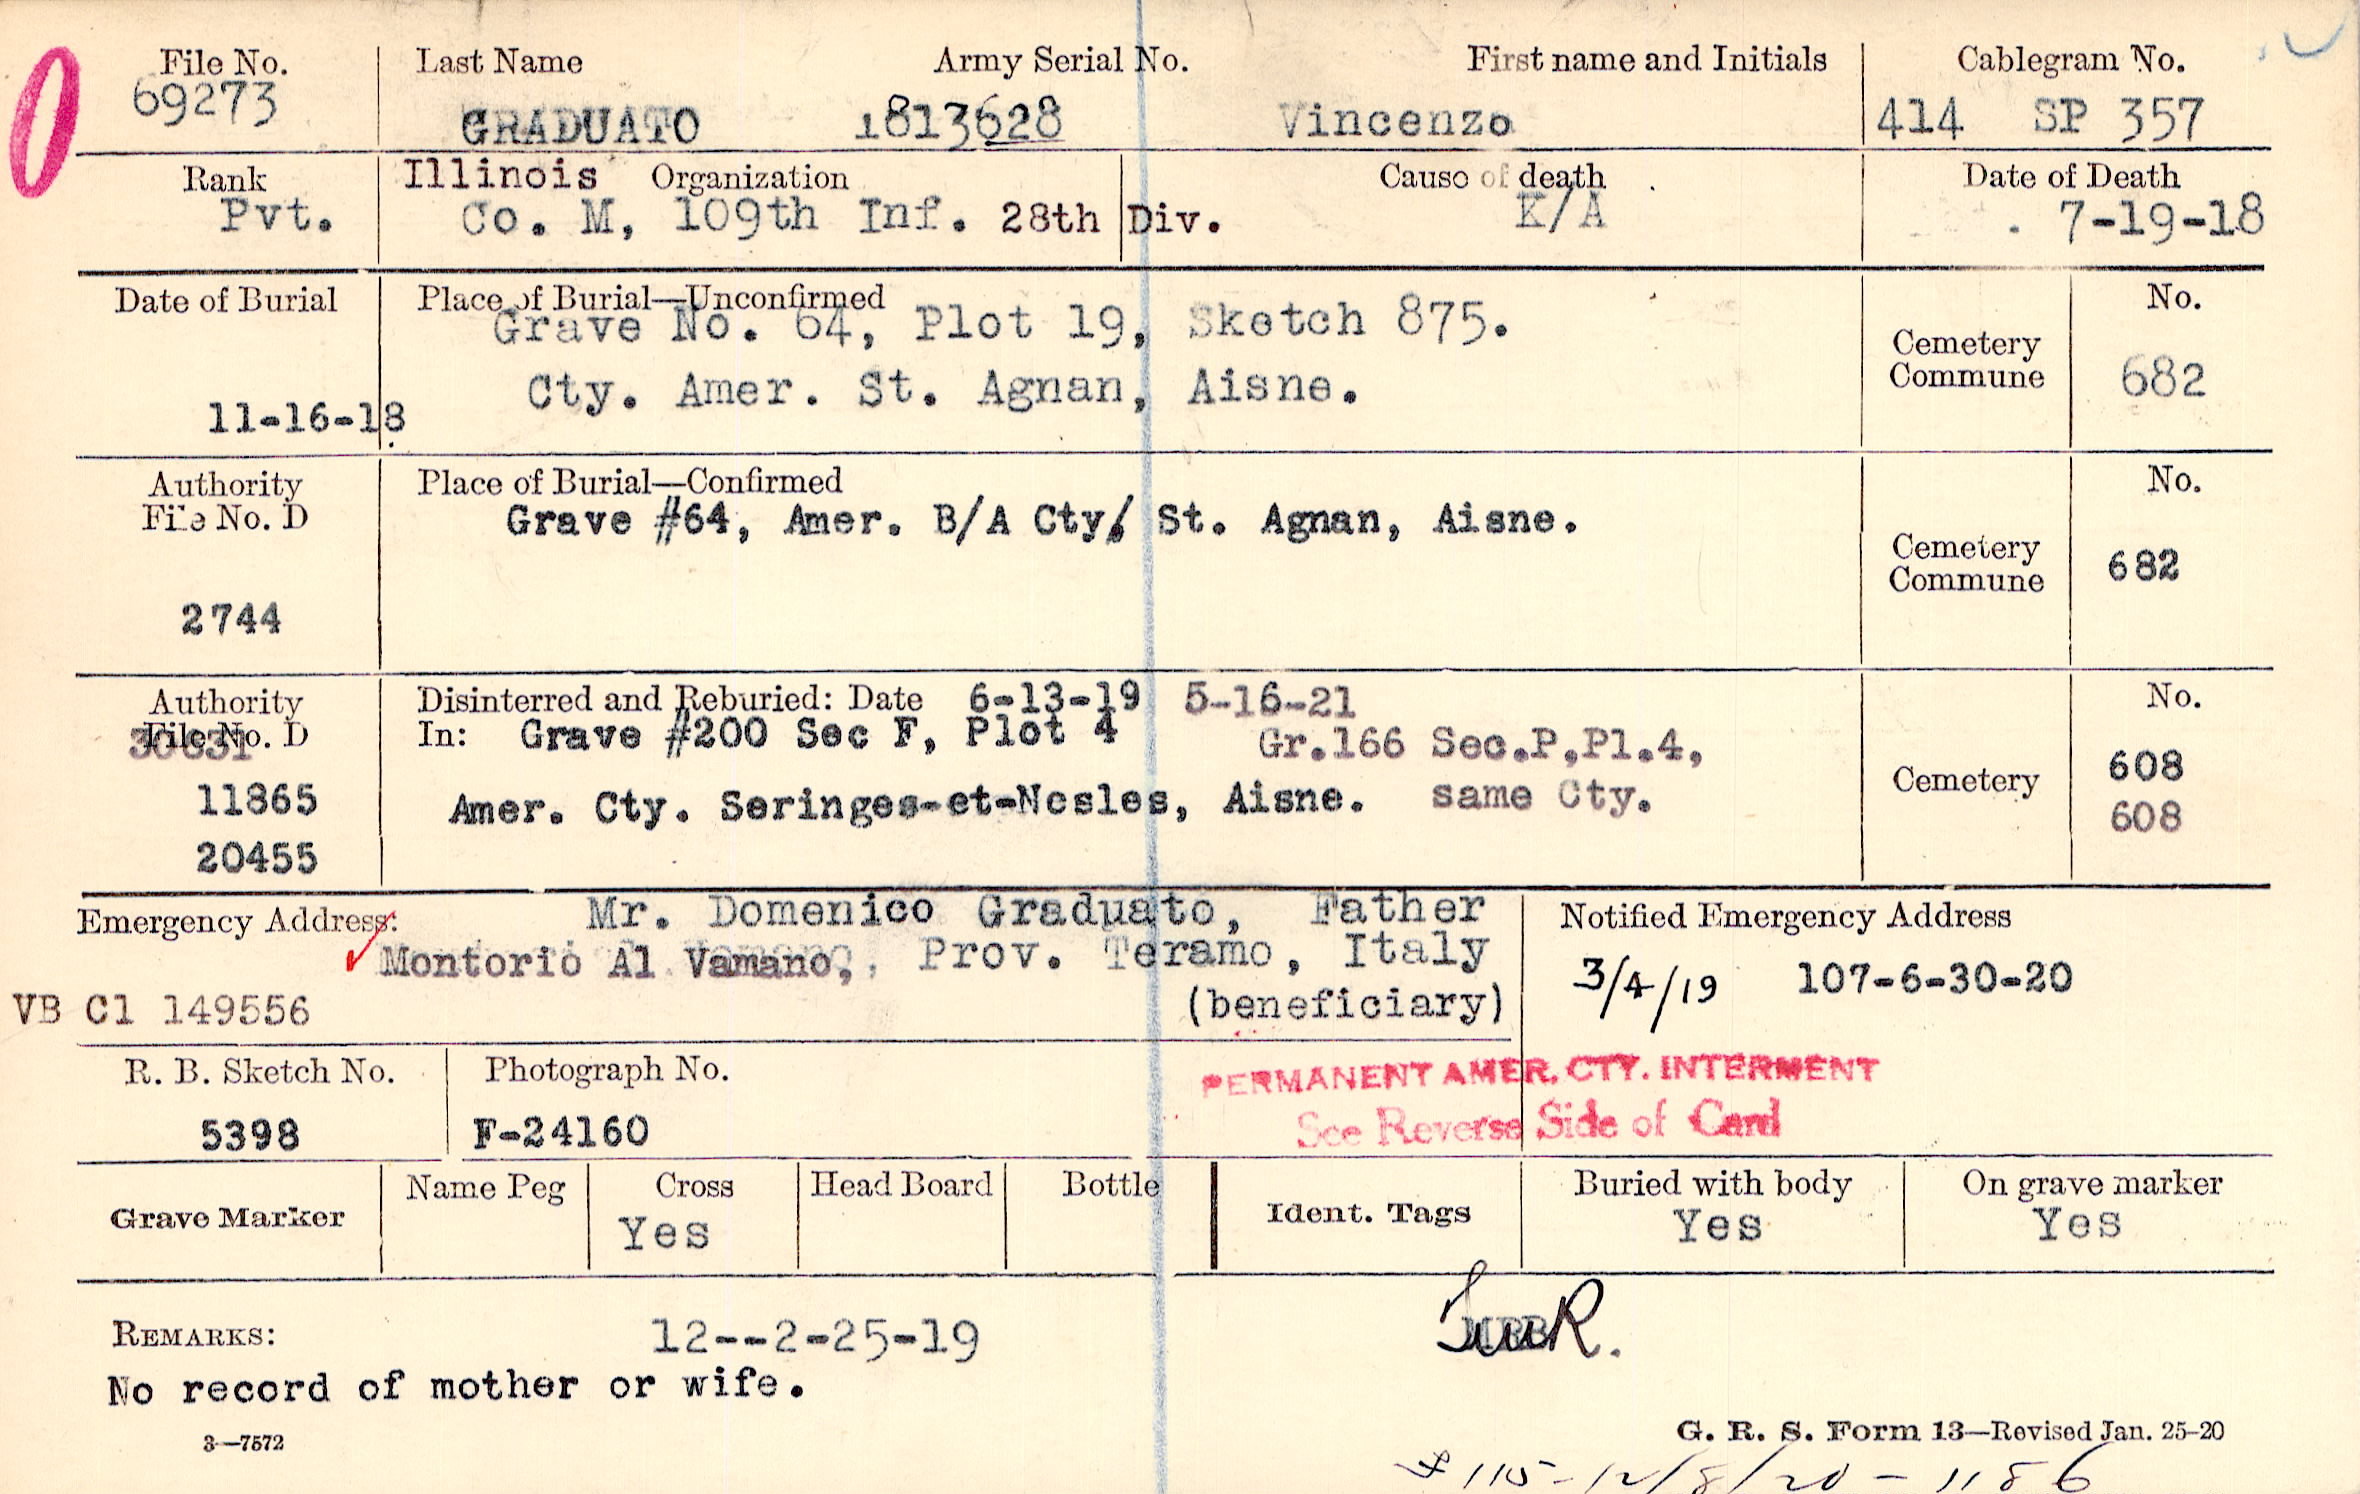 File No. Last Name Army Serial No. First name and Initials Cablegram No.
69273 GRADUATO 1813628 Vincenzo 414 SP 357
Rank Illinois Organization Cause of death Date of Death
Pvt. Co. M, 109th Inf. 28th Div. K/A 7-19-18
Date of Burial Place of Burial—Unconfirmed No.
Grave No. 64, Plot 19, Sketch 875.
Cemetery
Commune 682
Cty. Amer. St. Agnan, Aisne.
11-16-18
Authority Place of Burial—Confirmed No.
File No. D Grave #64, Amer. B/A Cty. St. Agnan, Aisne.
Cemetery
Commune 682
2744
Authority Disinterred and Reburied: Date 6-13-19 5-16-21 No.
File No. D In: Grave #200 Sec F, Plot 4 Gr.166 Sec.P,Pl.4,
30631
11865 Amer. Cty. Seringes-et-Nesles, Aisne. same Cty. Cemetery 608
608
20455
Emergency Address: Mr. Domenico Graduato, Father Notified Emergency Address
Montorio Al Vamano, Prov. Teramo, Italy 3/4/19 107-6-30-20
VB Cl 149556 (beneficiary)
R. B. Sketch No. Photograph No. PERMANENT AMER. CTY. INTERMENT
5398 F-24160 See Reverse Side of Card
Grave Marker Name Peg Cross Head Board Bottle Ident. Tags Buried with body On grave marker
Yes Yes Yes
REMARKS: 12--2-25-19
No record of mother or wife.
3—7572 G. R. S. Form 13—Revised Jan. 25-20
115-12/8/20-1186